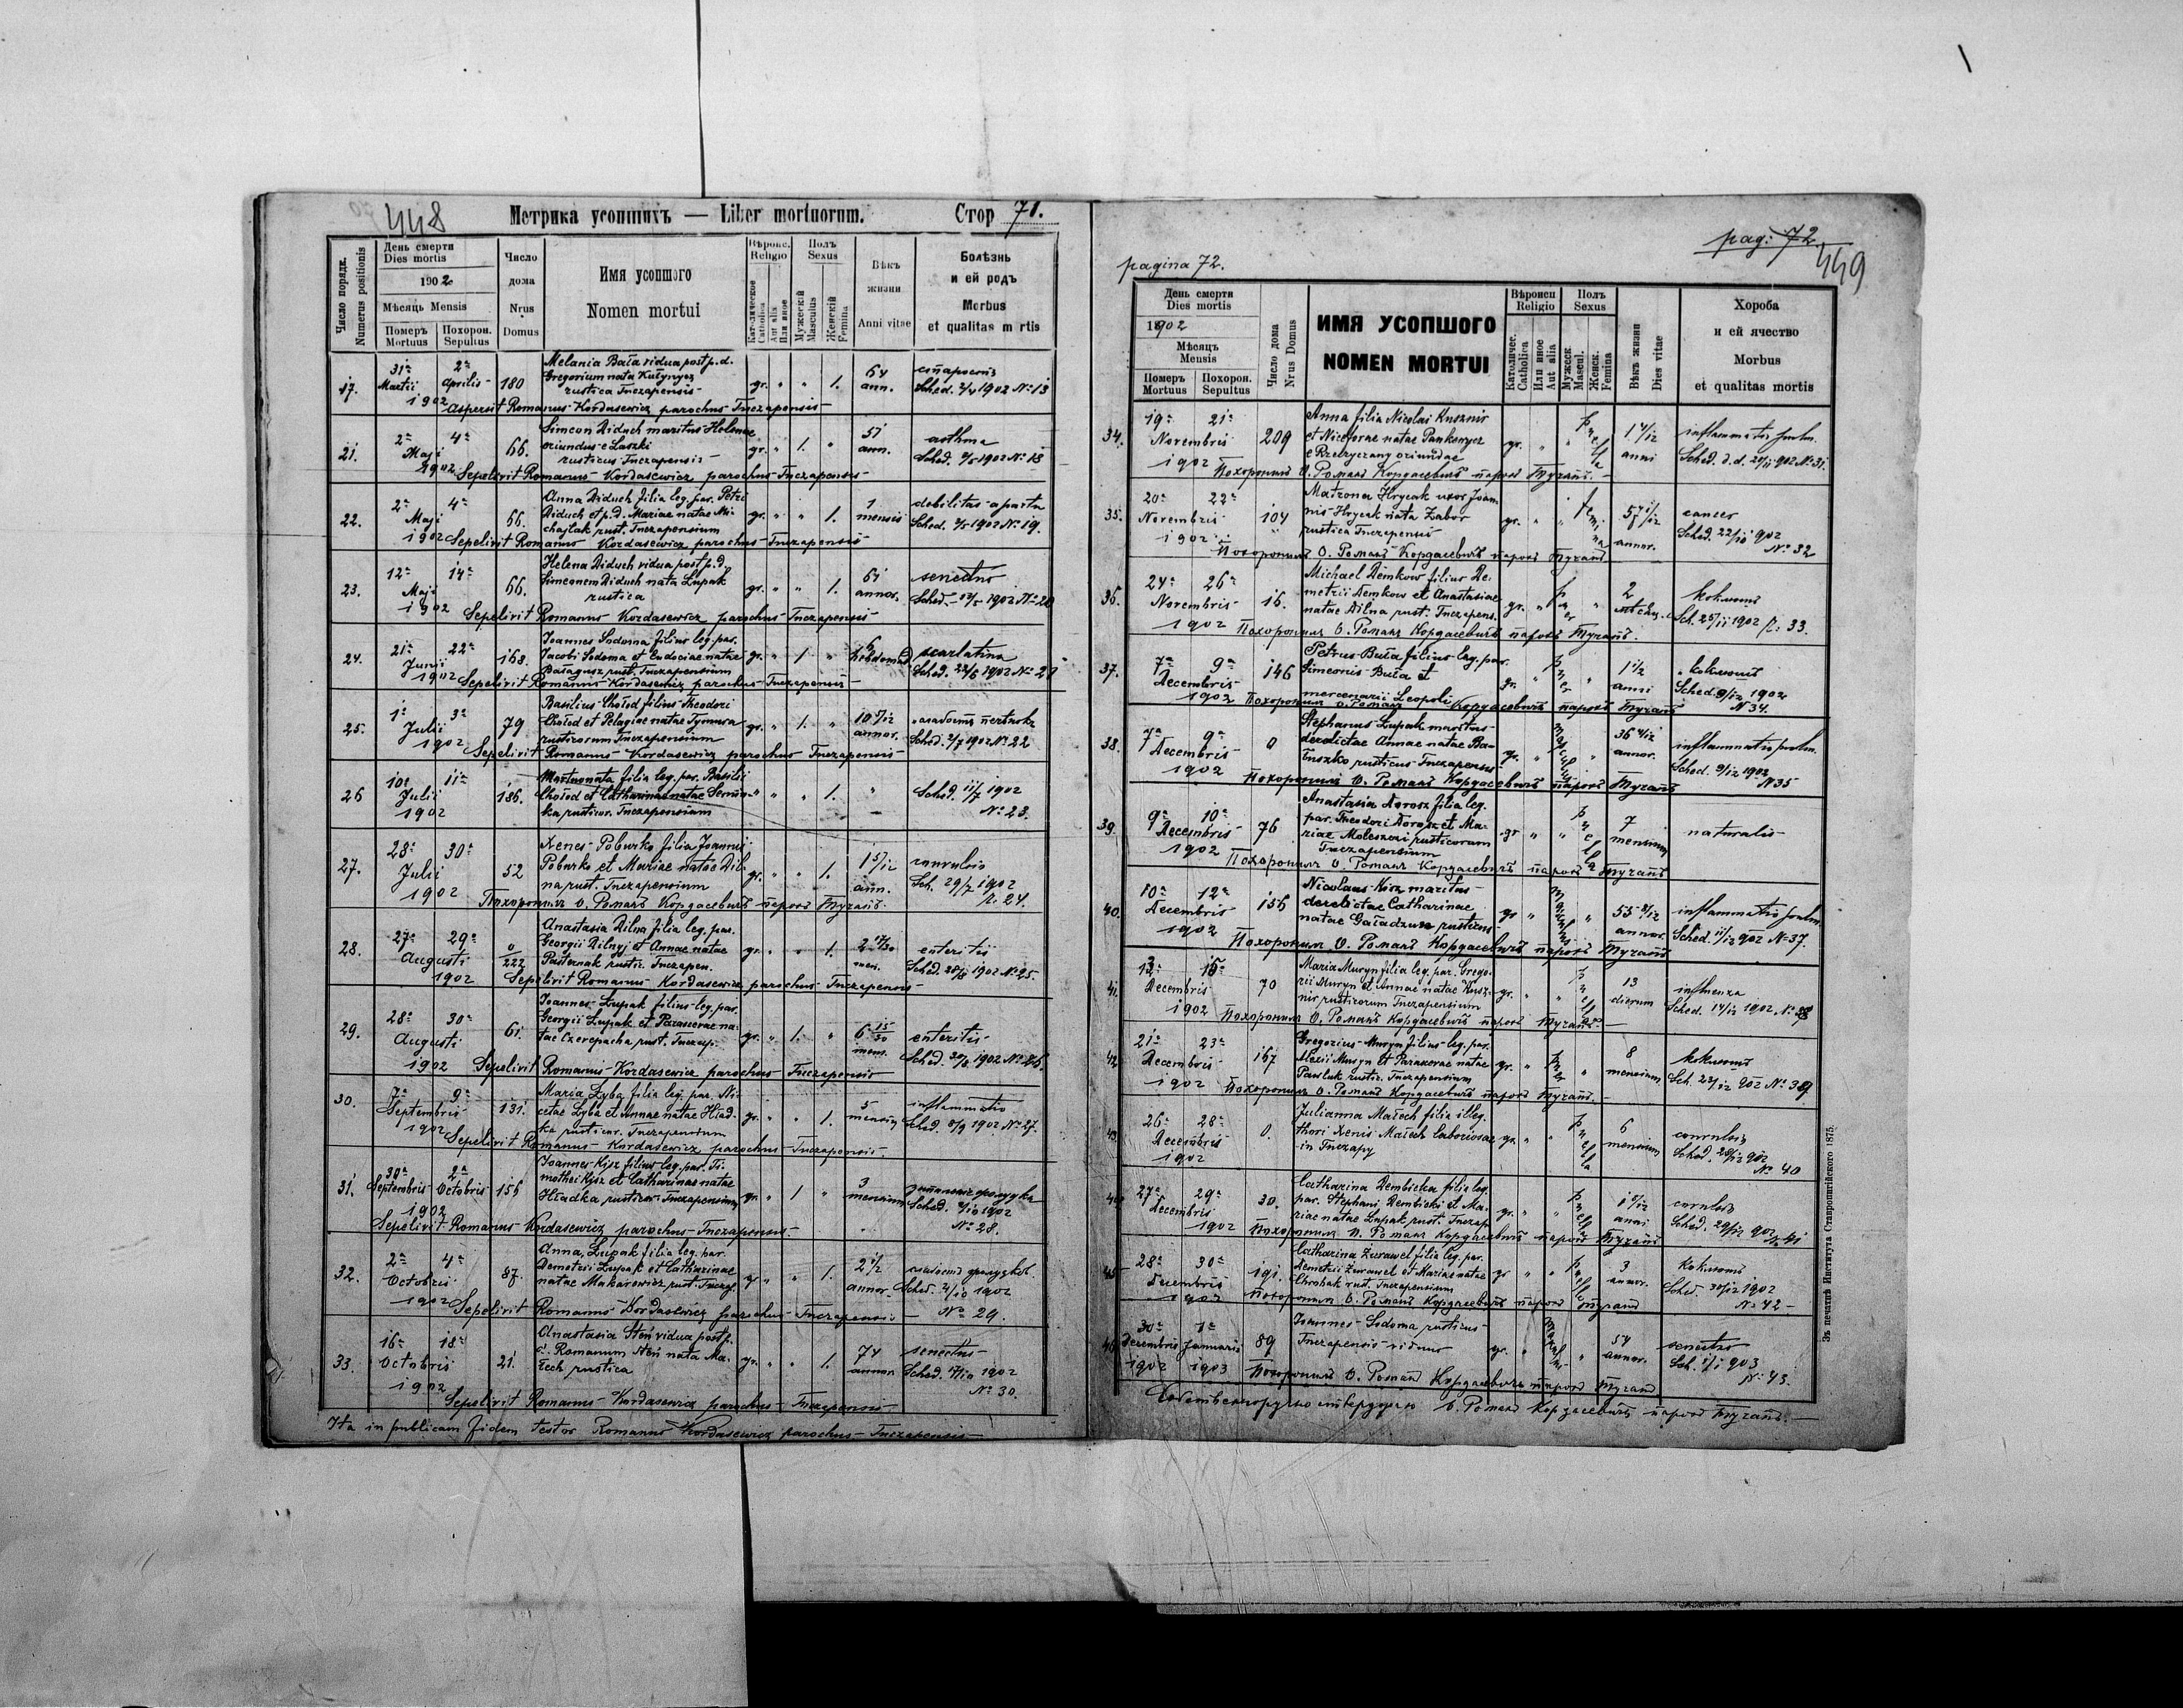 448
Метрика усопшихъ — Liber mortuorum.
Стор 71.
Число порядк.
Numerus positionis
День смерти
Dies mortis
1902
Мѣсяць Mensis
Померъ
Mortuus
Похорон.
Sepultus
Число
дома
Nrus
Domus
Имя усопшого
Nomen mortui
Вѣроис.
Religio
Catholica
Или иное
Aut alia
Полъ
Sexus
Мужескій
Masculus
Женскій
Femina
Вѣкъ
жизни
Anni vitae
Болѣзнь
и ей родъ
Morbus
et qualitas m rtis
17. 31a Martii 2a Aprilis 1902 180
Melania Bała vidua post p. d.
Gregorium nata Kułynycz
rustica Tuczapensis
gr. " " 1. 64 ann.
старость
Sched. 2/4 1902 No 13
Aspersit Romanus Kordasewicz parochus Tuczapensis
21. 2a 4a Maji 1902 66.
Simeon Diduch maritus Helenae
oriundus e Laszki
rusticus Tuczapensis
gr. " 1. " 51 ann.
asthma
Sched. 3/5 1902 No 18
Sepelivit Romanus Kordasewicz parochus Tuczapensis
22. 2a 4a Maji 1902 66.
Anna Diduch filia leg. par. Petri
Diduch et p. d. Mariae natae Mi-
chajlak rust. Tuczapensium
gr. " " 1. 1 mensis
debilitas a partu
Sched. 3/5 1902 No 19.
Sepelivit Romanus Kordasewicz parochus Tuczapensis
23. 12a 14a Maji 1902 66.
Helena Diduch vidua post p. d.
Simeonem Diduch nata Łupak
rustica
gr. " " 1. 61 annor.
senectus
Sched. 13/5 1902 No 20
Sepelivit Romanus Kordasewicz parochus Tuczapensis
24. 21a 22a Junii 1902 163.
Joannes Sodoma filius leg. par.
Jacobi Sodoma et Eudociae natae
rust. Tuczapensium
gr. " 1 " 6 hebdomad.
scarlatina
Sched. 22/6 1902 No 21
Sepelivit Romanus Kordasewicz parochus Tuczapensis
25. 1a 3a Julii 1902 79
Basilius Chołod filius Theodori
Chołod et Pelagiae natae Tymura
rusticorum Tuczapensium
gr. " 1. " 10 7/12 annor.
Sched. 2/7 1902 No 22
Sepelivit Romanus Kordasewicz parochus Tuczapensis
26 10a 11a Julii 1902 186.
Mortuonata filia leg. par. Basilii
Chołod et Catharinae natae
ka rusticor. Tuczapensium
" " " 1. "
Sched. 11/7 1902
No 23.
27. 28a 30a Julii 1902 52
Xenes Poburko filia Joannis
Poburko et Mariae natae Dil-
na rust. Tuczapensium
gr. " " 1. 1 5/12 ann.
convulsio
Sch. 29/7 1902
No 24.
Похоронилъ О. Романъ Кордасевичъ парохъ Тучапъ.
28. 27a 29a Augusti 1902 0/222
Anastasia Dilna filia leg. par.
Georgii Dilnyj et Annae natae
Pasternak rustic. Tuczapen.
gr. " " 1. 2 17/30 men.
enteritis
Sched. 28/8 1902 No 25.
Sepelivit Romanus Kordasewicz parochus Tuczapensis
29. 28a 30a Augusti 1902 61.
Joannes Łupak filius leg. par.
Georgii Łupak et Parascevae na-
tae Czerepacha rust. Tuczap.
gr. " 1. " 6 15/30 mens.
enteritis
Sched. 30/8 1902 No 26.
Sepelivit Romanus Kordasewicz parochus Tuczapensis
30. 7a 9a Septembris 1902 131.
Maria Zyba filia leg. par. Ni-
cetae Zyba et Annae natae Hład-
ka rusticor. Tuczapensium
gr. " " 1. 5 mensium
inflammatio
Sched. 8/9 1902 No 27.
Sepelivit Romanus Kordasewicz parochus Tuczapensis
31. 30a Septembris 2a Octobris 1902 155
Joannes Kisz filius leg. par. Ti-
mothei Kisz et Catharinae natae
Hładka rusticor. Tuczapensium
gr. " 1 " 3 mensium
Sched. 1/10 1902
No 28.
Sepelivit Romanus Kordasewicz parochus Tuczapensis
32. 2a 4a Octobris 1902 87.
Anna Łupak filia leg. par.
Demetrii Łupak et Catharinae
natae Makarowicz rust. Tuczap.
gr " " 1. 2 1/2 annor.
Sched. 4/10 1902
No 29.
Sepelivit Romanus Kordasewicz parochus Tuczapensis
33. 16a 18a Octobris 1902 21.
Anastasia Steń vidua post p.
d. Romanum Steń nata Ma-
łech rustica
gr. " " 1. 74 annor.
senectus
Sched. 17/10 1902
No 30.
Sepelivit Romanus Kordasewicz parochus Tuczapensis
Ita in publicam fidem testor Romanus Kordasewicz parochus Tuczapensis
pagina 72.
pag: 72.
449
День смерти
Dies mortis
1902
Мѣсяць
Mensis
Померъ
Mortuus
Похорон.
Sepultus
Число дома
Nrus Domus
ИМЯ УСОПШОГО
NOMEN MORTUI
Вѣроисп
Religio
Католичес.
Catholica
Или иное
Aut alia
Полъ
Sexus
Мужеск.
Mascul.
Женск.
Femina
Вѣкъ жизни
Dies vitae
Хороба
и ей ячество
Morbus
et qualitas mortis
34. 19a 21a Novembris 1902 209
Anna filia Nicolai Kusznir
et Niceforae natae Pankewycz
e Przebryczany oriundae
gr. " " puella 1 4/12 anni
inflammatio pulm.
Sched. d. d. 20/11 902 No 31.
Похоронилъ О. Романъ Кордасевичъ парохъ Тучапъ.
35. 20a 22a Novembris 1902 104
Matrona Hrycak uxor Joan-
nis Hrycak nata Zabor
rustica Tuczapensis
gr. " " femina 57 1/12 annor.
cancer
Sched. 22/11 902
No 32
Похоронилъ О. Романъ Кордасевичъ парохъ Тучапъ
36. 24a 26a Novembris 1902 16.
Michael Demkow filius De-
metrii Demkow et Anastasiae
natae Dilna rust. Tuczapens.
gr. " puer " 2
коклюшъ
Sch. 25/11 1902 No 33.
Похоронилъ О. Романъ Кордасевичъ парохъ Тучапъ.
37. 7a 9a Decembris 1902 146
Petrus Buta filius leg. par.
Simeonis Buta et
mercenarii Leopoli
gr. " puer 1 1/2 anni
коклюшъ
Sched. 9/12 1902
No 34.
Похоронилъ О. Романъ Кордасевичъ парохъ Тучапъ
38. 7a 9a Decembris 1902 0
Stephanus Łupak maritus
derelictae Annae natae Ba-
tuszko rusticus Tuczapensis
gr. " masculus " 36 4/12 annor.
inflammatio pulm.
Sched. 9/12 1902
No 35
Похоронилъ О. Романъ Кордасевичъ парохъ Тучапъ
39. 9a 10a Decembris 1902 76
Anastasia Dorosz filia leg.
par. Theodori Dorosz et Ma-
riae Moleszczi rusticorum
Tuczapensium
gr " " puella 7 mensium
naturalis
Похоронилъ О. Романъ Кордасевичъ парохъ Тучапъ
40. 10a 12a Decembris 1902 155
Nicolaus Kisz maritus
derelictae Catharinae
natae Gaładzura rusticus
gr " masculus " 55 annor.
inflammatio pulm.
Sched. 11/12 902 No 37.
Похоронилъ О. Романъ Кордасевичъ парохъ Тучапъ
41. 13a 15a Decembris 1902 70
Maria Muryn filia leg. par. Grego-
rii Muryn et Annae natae Kusz-
nir rusticorum Tuczapensium
gr. " " puella 13 dierum
influenza
Sched. 14/12 1902. No 38
Похоронилъ О. Романъ Кордасевичъ парохъ Тучапъ.
42. 21a 23a Decembris 1902 167
Gregorius Muryn filius leg. par.
Alexii Muryn et Parascevae natae
Pawluk rustic. Tuczapensium
gr. " puer " 8 mensium
коклюшъ
Sch. 22/12 902 No 39
Похоронилъ О. Романъ Кордасевичъ парохъ Тучапъ.
43. 26a 28a Decembris 1902 0.
Julianna Małech filia illeg.
thori Xenis Małech laboriosae
in Tuczapy
gr. " " puella 6 mensium
convulsio
Sched. 28/12 902
No 40
44. 27a 29a Decembris 1902 30.
Catharina Dembicka filia leg.
par. Stephani Dembicki et Ma-
riae natae Łupak rust. Tuczap.
gr. " " puella anni
convulsio
Sched. 29/12 902 No 41
Похоронилъ О. Романъ Кордасевичъ парохъ Тучапъ
45 28a 30a Decembris 1902 191.
Catharina Żurawel filia leg. par.
Demetrii Żurawel et Mariae natae
Chrobak rust. Tuczapensium
gr " " puella 3 annor.
коклюшъ
Sched. 30/12 1902
No 42
Похоронилъ О. Романъ Кордасевичъ парохъ Тучапъ
46 30a Decembris 1902 1a Januarii 1903 89
Joannes Sodoma rusticus
Tuczapensis viduus
gr. " masculus " 54 annor.
senectus
Sch. 1/1 903
No 43.
Похоронилъ О. Романъ Кордасевичъ парохъ Тучапъ
Собственноручно твердужю О. Романъ Кордасевичъ парохъ Тучапъ.
Зъ печатнѣ Института Ставропигійского 1875.